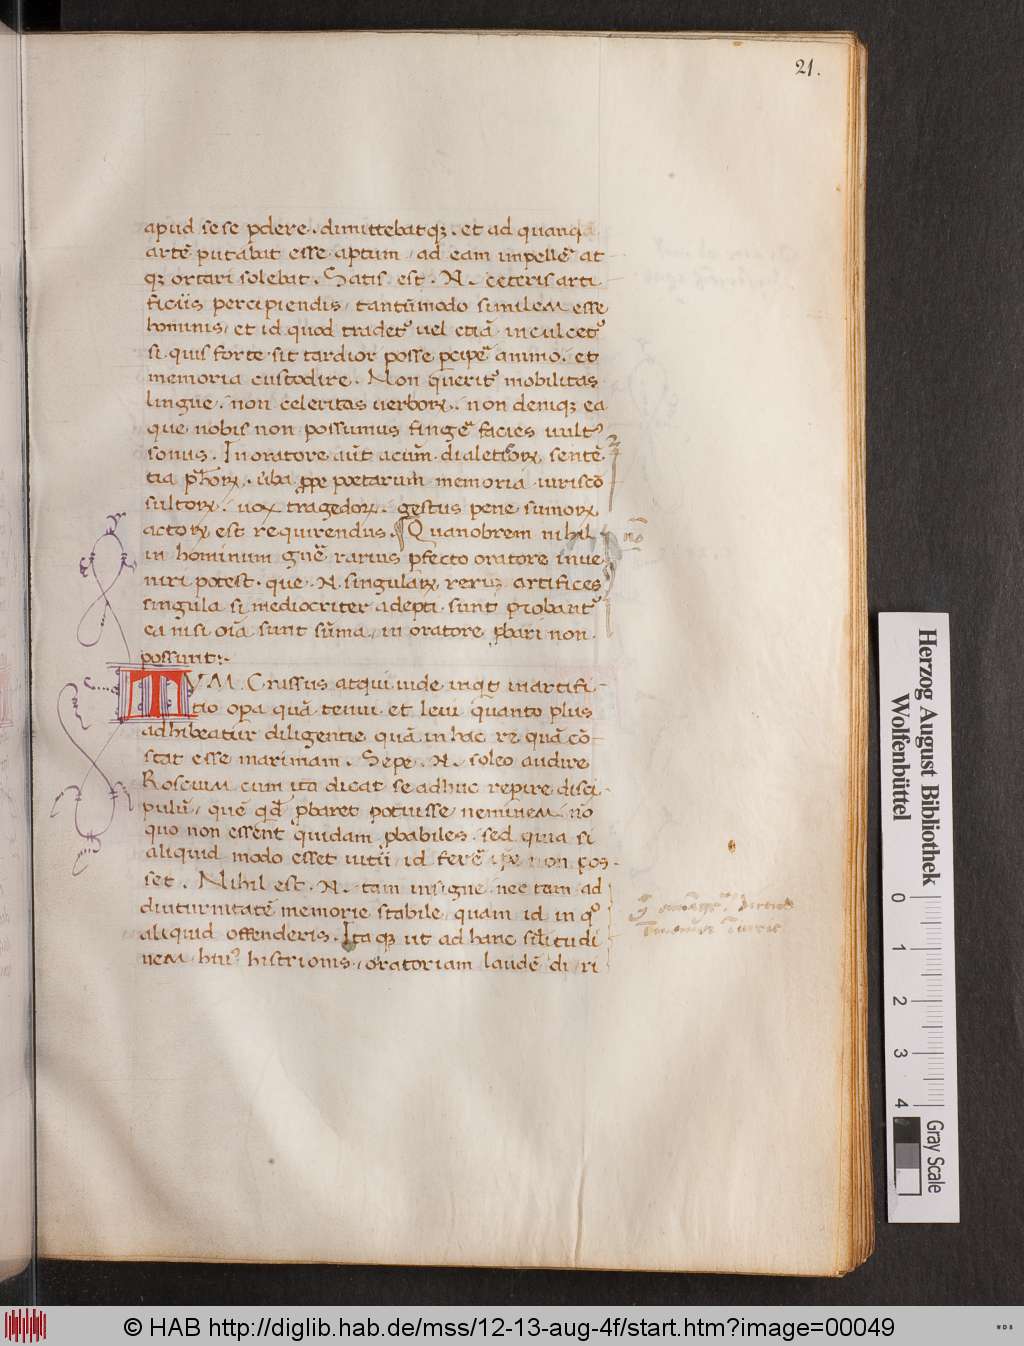 21.
apud sese pdere. dimittebatqꝫ. et ad quanq̄
artē putabat esse aptum, ad eam impellē at
qꝫ ortari solebat. Satis est. N. ceteris arti
ficiis percipiendis, tantūmodo similem esse
hominis, et id quod tradet᷒ uel etiā inculcet᷒
si quis forte sit tardior posse pcipē animo. et
memoria custodire. Non querit᷒ mobilitas
lingue. non celeritas uerboꝝ. non deniqꝫ ea
que nobis non possumus fingē facies uult᷒
sonus. In oratore aūt acum̄ dialeticoꝝ, sentē
tia ph̄oꝝ. ūba ꝓpe poetarum memoria iuriscō
sultoꝝ. uox tragedoꝝ. gestus pene sumoꝝ
actoꝝ est requirendus. Quanobrem nihil
in hominum gn̄e rarius pfecto oratore inue
niri potest. que .N. singulaꝝ reruꝫ artifices
singula si mediocriter adepti sunt probant᷒
ea nisi oīa sunt sūma, in oratore pbari non
possunt:.
TVM. Crassus atqui uide inqt in artifi-
tio opa quā tenui et leui quanto plus
adhibeatur diligentie quā in hac re quā cō-
stat esse maximam. Sepe .N. soleo audire
Roscium cum ita dicat se adhuc reperire disci-
pulū, quē qd̄ pbaret potuisse neminem nō
quo non essent quidam pbabiles. sed quia si
aliquid modo esset uitii, id ferē ipe non pos-
set. Nihil est .N. tam insigne nec tam ad
diuturnitatē memorie stabile, quam id in q°
aliquid offenderis. Itaqꝫ ut ad hanc sil̄itudi
nem hui᷒ histrionis, oratoriam laudē diri
nō
Herzog August Bibliothek
Wolfenbüttel
0
1
2
3
4
Gray Scale
© HAB http://diglib.hab.de/mss/12-13-aug-4f/start.htm?image=00049